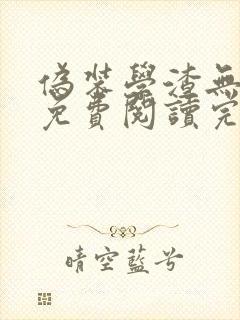 偽裝學渣無
免費閱讀完
晴空藍兮